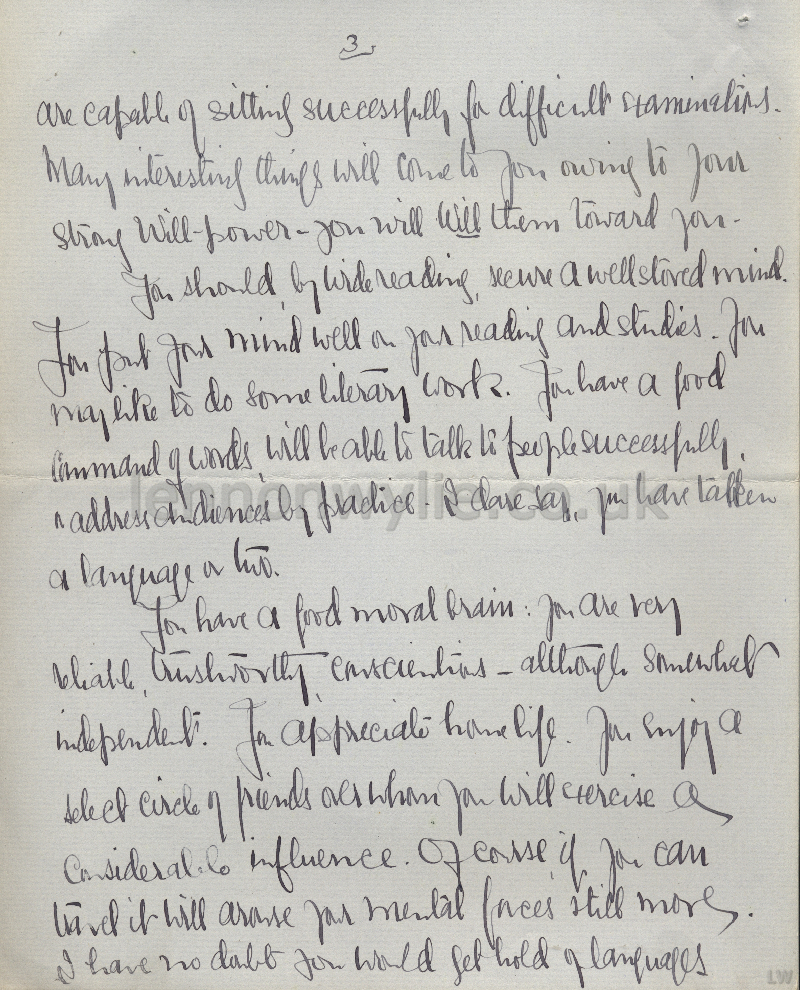 3
are capable of sitting successfully for difficult examinations.
Many interesting things will come to you owing to your
strong Will-power - you will Will them toward you -
You should, by wide reading, secure a well stored mind.
You put your mind well on your reading and studies. You
may like to do some literary work. You have a good
command of words, will be able to talk to people successfully,
or address audiences by practice. I dare say, you have taken
a language or two.
You have a good moral brain: you are very
reliable, trustworthy, conscientious - although somewhat
independent. You appreciate home life. You enjoy a
select circle of friends over whom you will exercise a
considerable influence. Of course, if you can
travel it will arouse your mental forces still more.
I have no doubt you would get hold of languages
lennonwylie.co.uk
LW